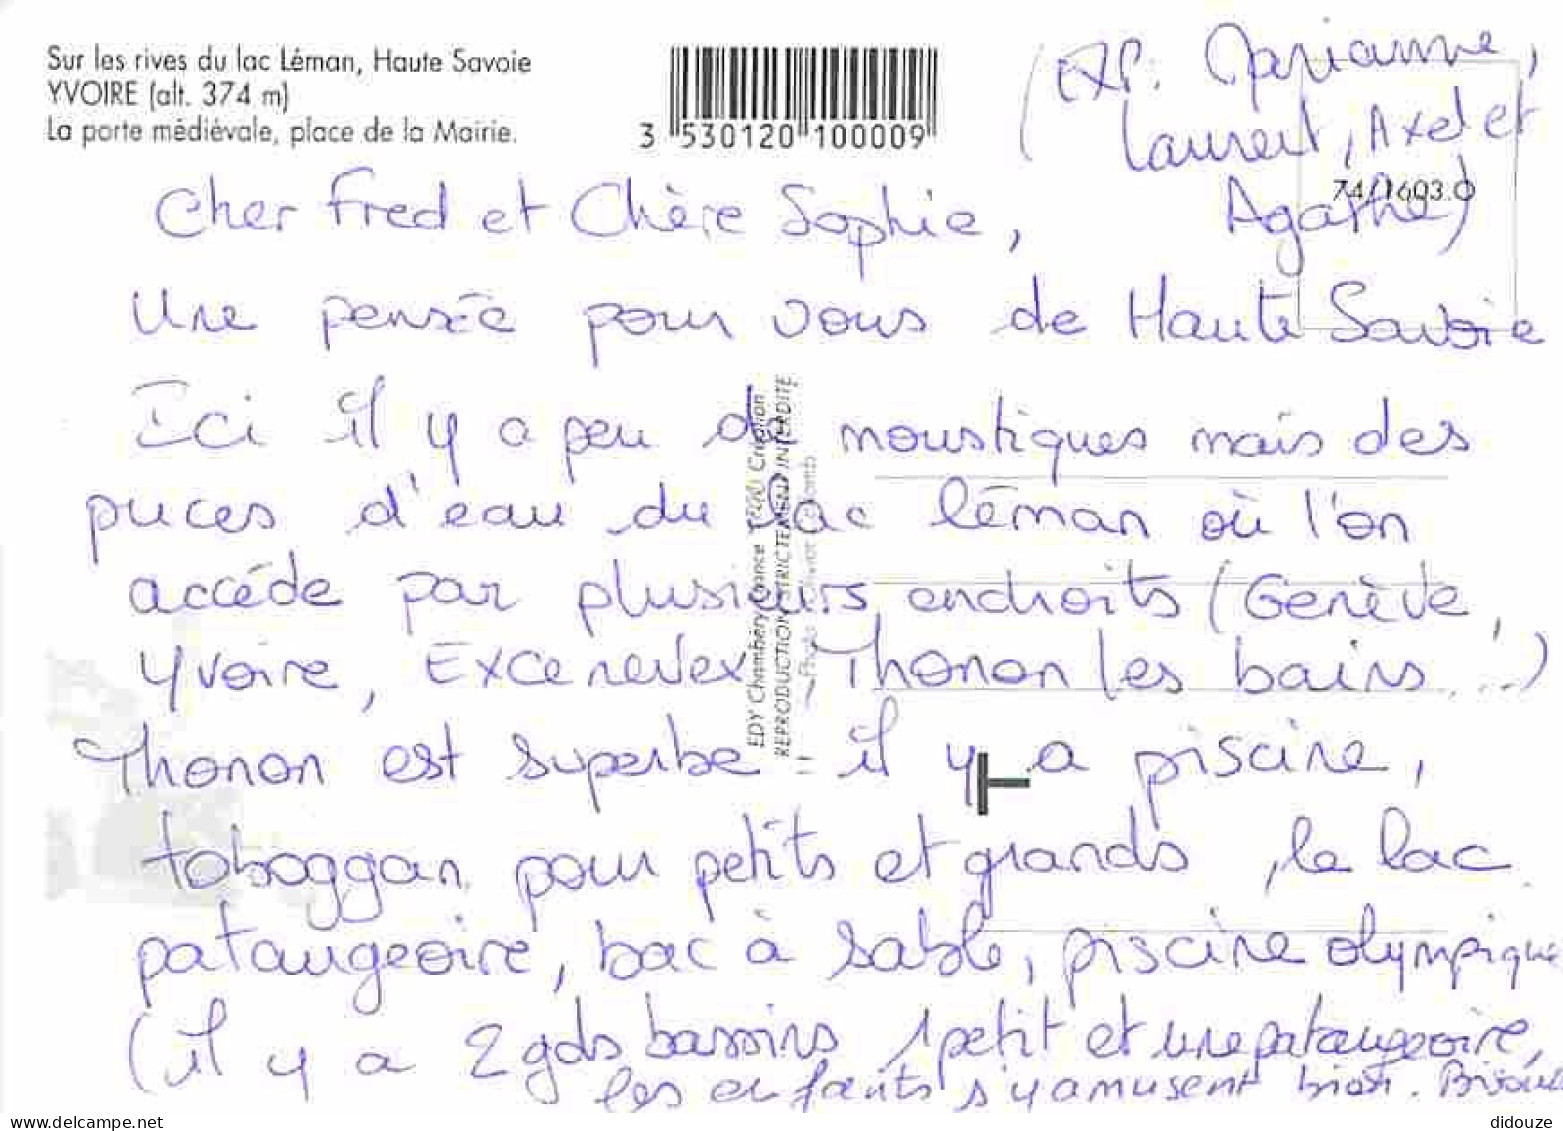 Sur les rives du lac Léman, Haute Savoie
YVOIRE (alt. 374 m)
La porte médiévale, place de la Mairie.
3 530120 100009
(EXP. Marianne,
Laurent, Axel et
Agathe)
74/1603.0
Cher Fred et Chère Sophie,
Une pensée pour vous de Haute Savoie
Ici il y a peu de moustiques mais des
puces d'eau du lac léman où l'on
accéde par plusieurs endroits (Genève,
Yvoire, Excenevex Thonon les bains...)
Thonon est superbe il y a piscine,
toboggan pour petits et grands, le lac
pataugeoire, bac à sable, piscine olympique
(il y a 2 gds bassins 1 petit et une pataugeoire,
les enfants s'y amusent bien.
EDY Chambéry France
REPRODUCTION STRICTEMENT INTERDITE
www.delcampe.net
didouze